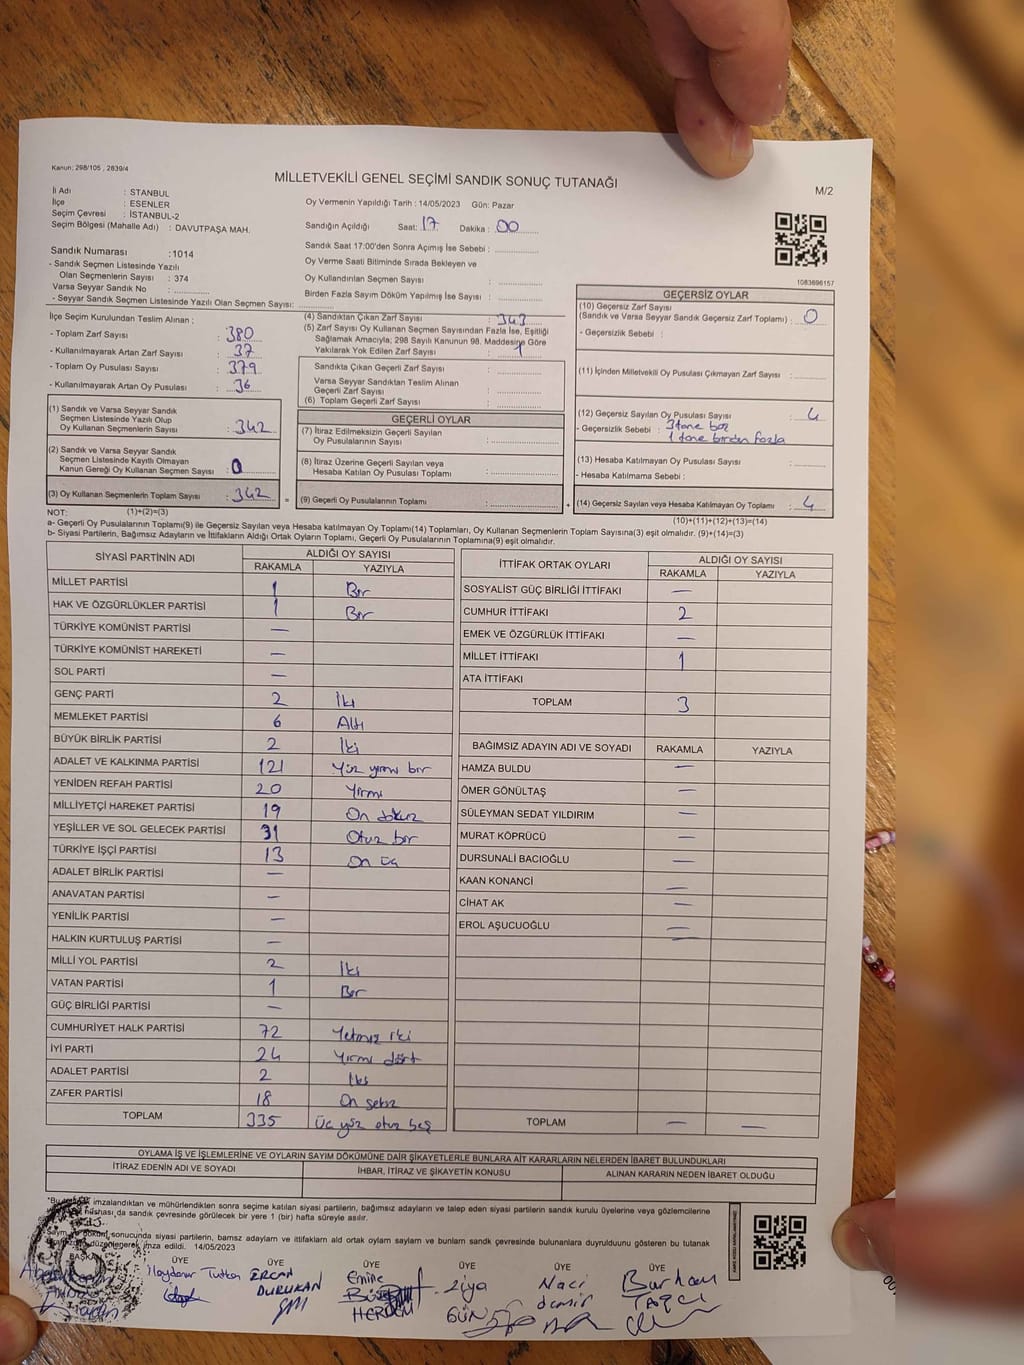 Kanun: 298/105 , 2839/4
MİLLETVEKİLİ GENEL SEÇİMİ SANDIK SONUÇ TUTANAĞI
M/2
İl Adı : STANBUL
İlçe : ESENLER
Seçim Çevresi : İSTANBUL-2
Seçim Bölgesi (Mahalle Adı) : DAVUTPAŞA MAH.
Oy Vermenin Yapıldığı Tarih : 14/05/2023 Gün: Pazar
Sandığın Açıldığı Saat: 17 Dakika : 00
Sandık Saat 17:00'den Sonra Açımış İse Sebebi :
Oy Verme Saati Bitiminde Sırada Bekleyen ve
Oy Kullandırılan Seçmen Sayısı :
Birden Fazla Sayım Döküm Yapılmış İse Sayısı :
Sandık Numarası :1014
- Sandık Seçmen Listesinde Yazılı
Olan Seçmenlerin Sayısı : 374
Varsa Seyyar Sandık No :
- Seyyar Sandık Seçmen Listesinde Yazılı Olan Seçmen Sayısı:
1083696157
İlçe Seçim Kurulundan Teslim Alınan ;
- Toplam Zarf Sayısı : 380
- Kullanılmayarak Artan Zarf Sayısı : 37
- Toplam Oy Pusulası Sayısı : 379
- Kullanılmayarak Artan Oy Pusulası : 36
(1) Sandık ve Varsa Seyyar Sandık
Seçmen Listesinde Yazılı Olup
Oy Kullanan Seçmenlerin Sayısı : 342
(2) Sandık ve Varsa Seyyar Sandık
Seçmen Listesinde Kayıtlı Olmayan
Kanun Gereği Oy Kullanan Seçmen Sayısı : 0
(3) Oy Kullanan Seçmenlerin Toplam Sayısı : 342
(4) Sandıktan Çıkan Zarf Sayısı : 343
(5) Zarf Sayısı Oy Kullanan Seçmen Sayısından Fazla İse, Eşitliği
Sağlamak Amacıyla; 298 Sayılı Kanunun 98. Maddesine Göre
Yakılarak Yok Edilen Zarf Sayısı : 1
Sandıkta Çıkan Geçerli Zarf Sayısı :
Varsa Seyyar Sandıktan Teslim Alınan
Geçerli Zarf Sayısı :
(6) Toplam Geçerli Zarf Sayısı :
GEÇERLİ OYLAR
(7) İtiraz Edilmeksizin Geçerli Sayılan
Oy Pusulalarının Sayısı :
(8) İtiraz Üzerine Geçerli Sayılan veya
Hesaba Katılan Oy Pusulası Toplamı :
= (9) Geçerli Oy Pusulalarının Toplamı :
GEÇERSİZ OYLAR
(10) Geçersiz Zarf Sayısı
(Sandık ve Varsa Seyyar Sandık Geçersiz Zarf Toplamı) : 0
- Geçersizlik Sebebi :
(11) İçinden Milletvekili Oy Pusulası Çıkmayan Zarf Sayısı :
(12) Geçersiz Sayılan Oy Pusulası Sayısı : 4
- Geçersizlik Sebebi : 3 tane boş
1 tane birden fazla
(13) Hesaba Katılmayan Oy Pusulası Sayısı :
- Hesaba Katılmama Sebebi :
+ (14) Geçersiz Sayılan veya Hesaba Katılmayan Oy Toplamı : 4
NOT: (1)+(2)=(3)
(10)+(11)+(12)+(13)=(14)
a- Geçerli Oy Pusulalarının Toplamı(9) ile Geçersiz Sayılan veya Hesaba katılmayan Oy Toplamı(14) Toplamları, Oy Kullanan Seçmenlerin Toplam Sayısına(3) eşit olmalıdır. (9)+(14)=(3)
b- Siyasi Partilerin, Bağımsız Adayların ve İttifakların Aldığı Ortak Oyların Toplamı, Geçerli Oy Pusulalarının Toplamına(9) eşit olmalıdır.
SİYASİ PARTİNİN ADI ALDIĞI OY SAYISI
RAKAMLA YAZIYLA
MİLLET PARTİSİ 1 Bir
HAK VE ÖZGÜRLÜKLER PARTİSİ 1 Bir
TÜRKİYE KOMÜNİST PARTİSİ —
TÜRKİYE KOMÜNİST HAREKETİ —
SOL PARTİ —
GENÇ PARTİ 2 İki
MEMLEKET PARTİSİ 6 Altı
BÜYÜK BİRLİK PARTİSİ 2 İki
ADALET VE KALKINMA PARTİSİ 121 Yüz yirmi bir
YENİDEN REFAH PARTİSİ 20 Yirmi
MİLLİYETÇİ HAREKET PARTİSİ 19 On dokuz
YEŞİLLER VE SOL GELECEK PARTİSİ 31 Otuz bir
TÜRKİYE İŞÇİ PARTİSİ 13 On üç
ADALET BİRLİK PARTİSİ —
ANAVATAN PARTİSİ —
YENİLİK PARTİSİ —
HALKIN KURTULUŞ PARTİSİ —
MİLLİ YOL PARTİSİ 2 İki
VATAN PARTİSİ 1 Bir
GÜÇ BİRLİĞİ PARTİSİ —
CUMHURİYET HALK PARTİSİ 72 Yetmiş iki
İYİ PARTİ 24 Yirmi dört
ADALET PARTİSİ 2 İki
ZAFER PARTİSİ 18 On sekiz
TOPLAM 335 Üç yüz otuz beş
İTTİFAK ORTAK OYLARI ALDIĞI OY SAYISI
RAKAMLA YAZIYLA
SOSYALİST GÜÇ BİRLİĞİ İTTİFAKI —
CUMHUR İTTİFAKI 2
EMEK VE ÖZGÜRLÜK İTTİFAKI —
MİLLET İTTİFAKI 1
ATA İTTİFAKI
TOPLAM 3
BAĞIMSIZ ADAYIN ADI VE SOYADI RAKAMLA YAZIYLA
HAMZA BULDU —
ÖMER GÖNÜLTAŞ —
SÜLEYMAN SEDAT YILDIRIM —
MURAT KÖPRÜCÜ —
DURSUNALİ BACIOĞLU —
KAAN KONANCİ —
CİHAT AK —
EROL AŞUCUOĞLU —
TOPLAM — —
OYLAMA İŞ VE İŞLEMLERİNE VE OYLARIN SAYIM DÖKÜMÜNE DAİR ŞİKAYETLERLE BUNLARA AİT KARARLARIN NELERDEN İBARET BULUNDUKLARI
İTİRAZ EDENİN ADI VE SOYADI İHBAR, İTİRAZ VE ŞİKAYETİN KONUSU ALINAN KARARIN NEDEN İBARET OLDUĞU
imzalandıktan ve mühürlendikten sonra seçime katılan siyasi partilerin, bağımsız adayların ve talep eden siyasi partilerin sandık kurulu üyelerine veya gözlemcilerine
nüshası da sandık çevresinde görülecek bir yere 1 (bir) hafta süreyle asılır.
sonucunda siyasi partilerin, bamsz adayların ve ittifakların ald ortak oylam saylam ve bunlarn sandk çevresinde bulunanlara duyrulduunu gösteren bu tutanak
düzenlenerek imza edildi. 14/05/2023
BAŞKAN ÜYE ÜYE ÜYE ÜYE ÜYE ÜYE
Haydanur Tutkan
ERCAN DURUKAN
Emine
HERDEM
Ziya GÜN
Naci demir
Burhan TAŞÇI